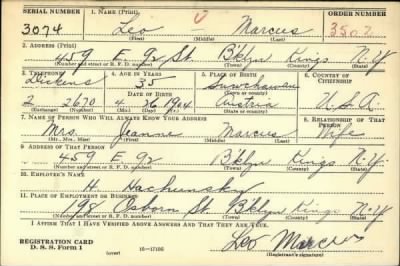 SERIAL NUMBER 1. NAME (Print) ORDER NUMBER
3074 Leo Marcus 3502
(First) (Middle) (Last)
2. ADDRESS (Print)
459 E. 92 St. Bklyn Kings N.Y.
(Number and street or R. F. D. number) (Town) (County) (State)
3. TELEPHONE 4. AGE IN YEARS 5. PLACE OF BIRTH 6. COUNTRY OF CITIZENSHIP
Dickens 35
DATE OF BIRTH (Town or county)
2 2670 4 26 1904 Austria U.S.A.
(Exchange) (Number) (Mo.) (Day) (Yr.) (State or country)
7. NAME OF PERSON WHO WILL ALWAYS KNOW YOUR ADDRESS 8. RELATIONSHIP OF THAT PERSON
Mrs. Jeanne Marcus Wife
(Mr., Mrs., Miss) (First) (Middle) (Last)
9. ADDRESS OF THAT PERSON
459 E. 92 Bklyn Kings N.Y.
(Number and street or R. F. D. number) (Town) (County) (State)
10. EMPLOYER'S NAME
H.
11. PLACE OF EMPLOYMENT OR BUSINESS
198 Osborn St. Bklyn Kings N.Y.
(Number and street or R. F. D. number) (Town) (County) (State)
I AFFIRM THAT I HAVE VERIFIED ABOVE ANSWERS AND THAT THEY ARE TRUE.
REGISTRATION CARD
D. S. S. Form 1 (over) 16-17105
Leo Marcus
(Registrant's signature)